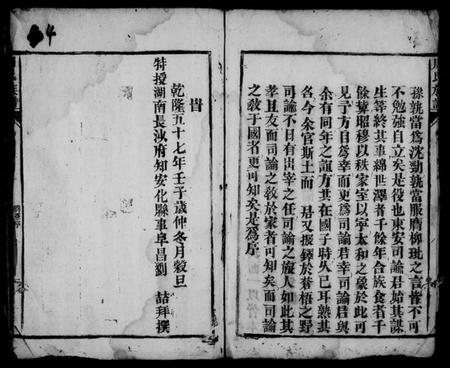 孫孰當爲沈勁孰當服膺柳玭之言皆不可
不勉強自立矣是役也東安司諭君始其謀
生等終其事綿世澤者千餘年合族食者千
餘輩昭穆以秩家室以寧太和之象於此可
見予方目爲幸而更爲司諭君幸司諭君與
余有同年之誼方其在國子時久已耳熟其
名今余官斯土而 君又振鐸於蒼梧之野
司諭不日有内宰之任司諭之族人如此其
孝且友而司諭之教於家者可知矣而司諭
之教于國者更可知矣是爲序
皆
乾隆五十七年壬子歲仲冬月穀旦
特授湖南長沙府知安化縣事阜昌劉 喆拜撰
4